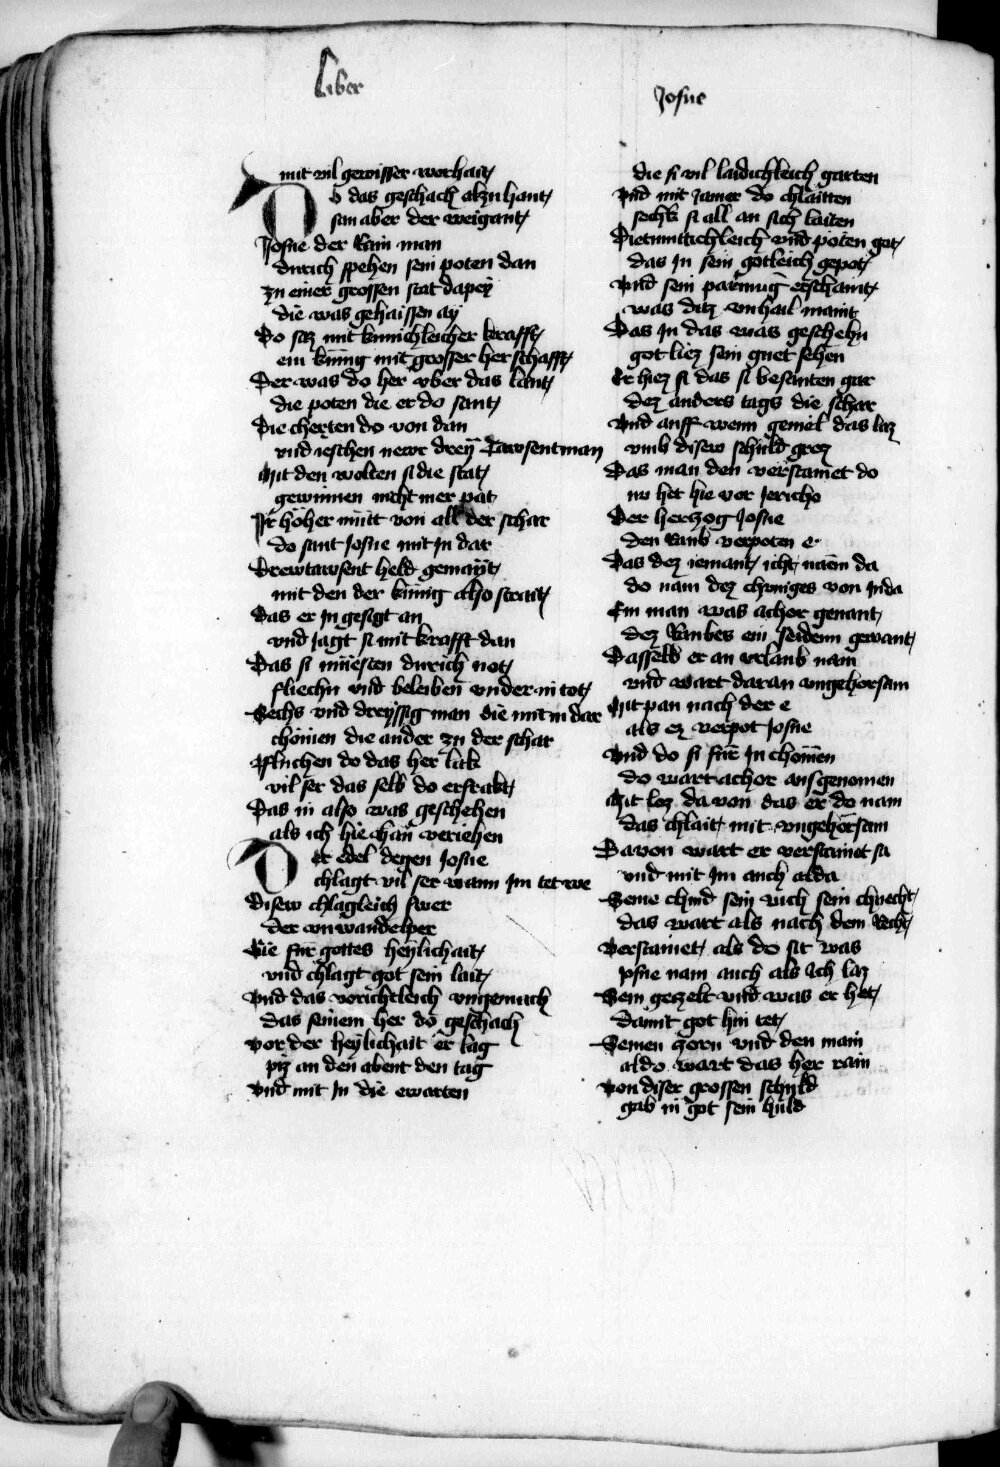 Liber
Josue
mit vil gewisser worhait
Do das geschach alzuhant
san aber der weigant
Josue der Rain man
durich spehen sein poten dan
zu einer grossen stat dapey
die was gehaissen ay
Do saz mit kunichleicher krafft
ein kunig mit grosser herschafft
Der was do her vber das lant
die poten die er do sant
Die cherten do von dan
vnd ieschen newr drey Tawsent man
Mit den wolten si die stat
gewinnen nicht mer pat
Ir hoher mut von all der schar
do sant Josue mit Jn dar
Drewtawsent held gemayt
mit den der kunig also strait
Das er Jn gesigt an
vnd Jagt si mit krafft dan
Das si muesten durich not
fliechn vnd beleiben vnder in tot
Sechs vnd dreyssig man die mit in dar
chomen die ander zu der schar
Fluchen do das her lak
vil ser das selb do erschrakt
Das in also was geschehen
als ich hie han veriehen
Der edel degen Josue
chlagt vil ser wann Jm tet we
Disew chlagleich swer
der vnwandelper
Vie fur gottes heylichait
vnd chlagt got sein lait
Vnd das vorichtleich vngemach
das seinem her do geschach
Vor der heylichait er lag
piz an den abent den tag
Vnd mit Jn die ewarten
die si vil laidichleich garten
Vnd mit Jamer do chlaitten
sechs si all an sich laiten
Diemuttichleich vnd poten got
das Jn sein gotleich gepot
Vnd sein parmung erschaint
was ditz vnhail maint
Das Jn das was geschehn
got liez sein guet sehen
Er hiez si das si besanten gar
dez anders tags die schar
Vnd auff wenn geviel das laz
vmb disew schuld groz
Das man den verstainet do
nv het hie vor Jericho
Der herzog Josue
den Raub verpoten e
Das dez iemant icht naem da
do nam dez chuniges von Juda
Ein man was achor genant
dez Raubes ein seidenn gewant
Dasselb er an vrlaub nam
vnd wart daran vngehorsam
Mit pan nach der e
als ez verpot Josue
Vnd do si fur Jn chomen
do wart achor ausgenomen
Mit loz da von das er do nam
das chlait mit vngehorsam
Davon wart er verstainet sa
vnd mit Jm auch alda
Seine chind sein vich sein chnecht
das wart als nach dem Recht
Verstainet als do sit was
Josue nam auch als Jch laz
Sein gezelt vnd was er het
damit got hin tet
Seinen zorn vnd den main
aldo wart das her rain
Von diser grossen schuld
gab in got sein huld